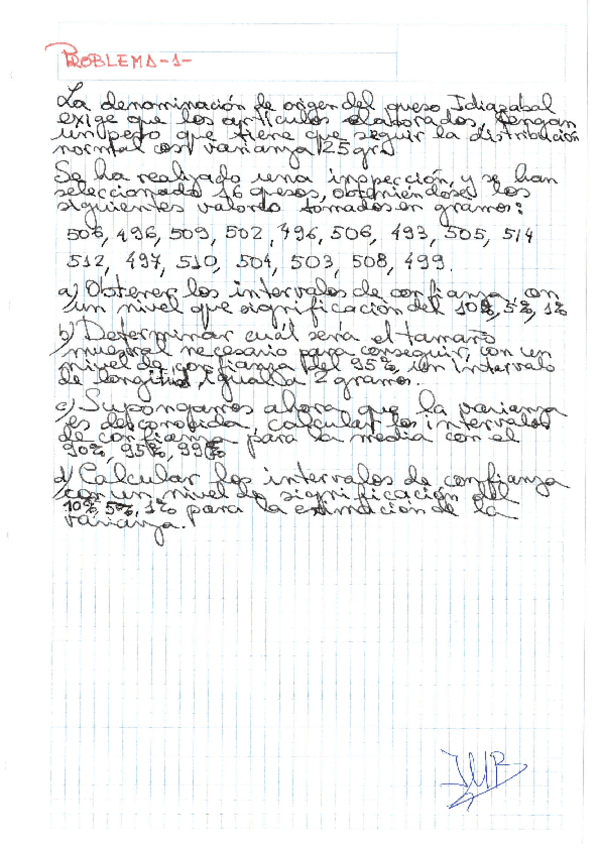 PROBLEMA-1-
La denominación de origen del queso Idiazabal
exige que los artículos elaborados, tengan
un peso que tiene que seguir la distribución
normal con varianza 25 gr.
Se ha realizado una inspección, y se han
seleccionado 16 quesos, obteniéndose los
siguientes valores tomados en gramos:
506, 496, 509, 502, 496, 506, 493, 505, 514
512, 497, 510, 504, 503, 508, 499.
a) Obtener los intervalos de confianza, con
un nivel que significación del 10%, 5%, 1%
b) Determinar cuál sería el tamaño
muestral necesario para conseguir, con un
nivel de confianza del 95%, un intervalo
de longitud, igual a 2 gramos.
c) Supongamos ahora que la varianza
es desconocida, calcular los intervalos
de confianza para la media con el
90%, 95%, 99%
d) Calcular los intervalos de confianza
con un nivel de significación del
10%, 5%, 1% para la estimación de la
varianza.